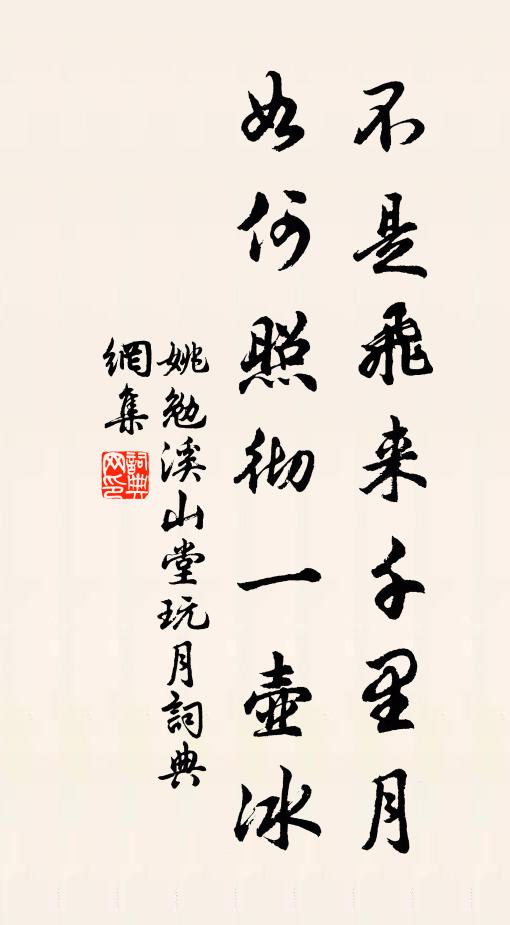 不是飛来千里月
如何照彻一壺冰
姚勉溪山堂玩月詞典
網集
詞典
网印